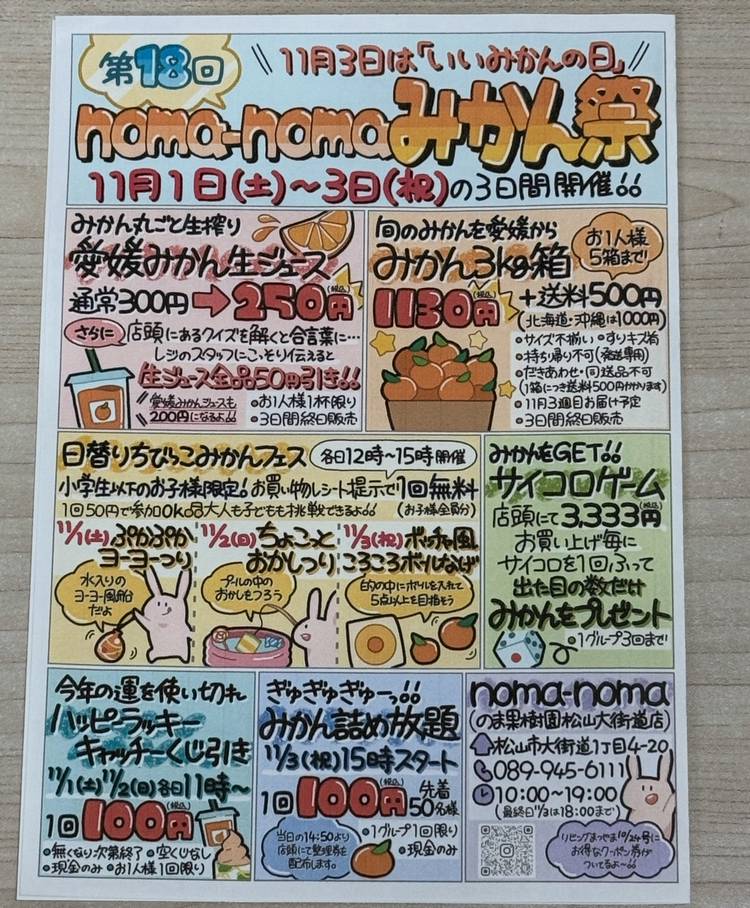 第18回
11月3日は「いいみかんの日」
noma-nomaみかん祭
11月1日(土)～3日(祝)の3日間開催!!
みかん丸ごと生搾り
愛媛みかん生ジュース
通常300円→250円(税込)
さらに 店頭にあるクイズを解くと合言葉に…
レジのスタッフにこっそり伝えると
生ジュース全品50円引き!!
愛媛みかんジュースも
200円になるよ!!
•お1人様1杯限り
•3日間終日販売
旬のみかんを愛媛から
みかん3kg箱
お1人様
5箱まで!
1130円(税込)+送料500円
(北海道・沖縄は1000円)
•サイズ不揃い •すりキズ有
•持ち帰り不可(発送専用)
•だきあわせ・同送品不可
(1箱につき送料500円かかります)
•11月3週目お届け予定
•3日間終日販売
日替りちびっこみかんフェス
各日12時～15時開催
小学生以下のお子様限定!お買い物レシート提示で1回無料
(お子様全員分)
1回50円で参加OK◎大人も子どもも挑戦できるよ!!
11/1(土)ぷかぷか
ヨーヨーつり
水入りの
ヨーヨー風船
だよ
11/2(日)ちょこっと
おかしつり
プールの中の
おかしをつろう
11/3(祝)ボッチャ風
ころころボールなげ
的の中にボールを入れて
5点以上を目指そう
みかんをGET!!
サイコロゲーム
店頭にて3,333円(税込)
お買い上げ毎に
サイコロを1回ふって
出た目の数だけ
みかんをプレゼント
•1グループ3回まで
今年の運を使い切れ
ハッピーラッキー
キャッチーくじ引き
11/1(土)11/2(日)各日11時～
1回100円(税込)
•無くなり次第終了 •空くじなし
•現金のみ •お1人様1回限り
ぎゅぎゅぎゅーっ!!
みかん詰め放題
11/3(祝)15時スタート
1回100円(税込)
先着
50名様
当日の14:50より
店頭にて整理券を
配布します。
•1グループ1回限り
•現金のみ
noma-noma
(のま果樹園松山大街道店)
松山市大街道1丁目4-20
089-945-6111
10:00～19:00
(最終日11/3は18:00まで)
リビングまつやま10/24号に
お得なクーポン券が
ついてるよ～!!